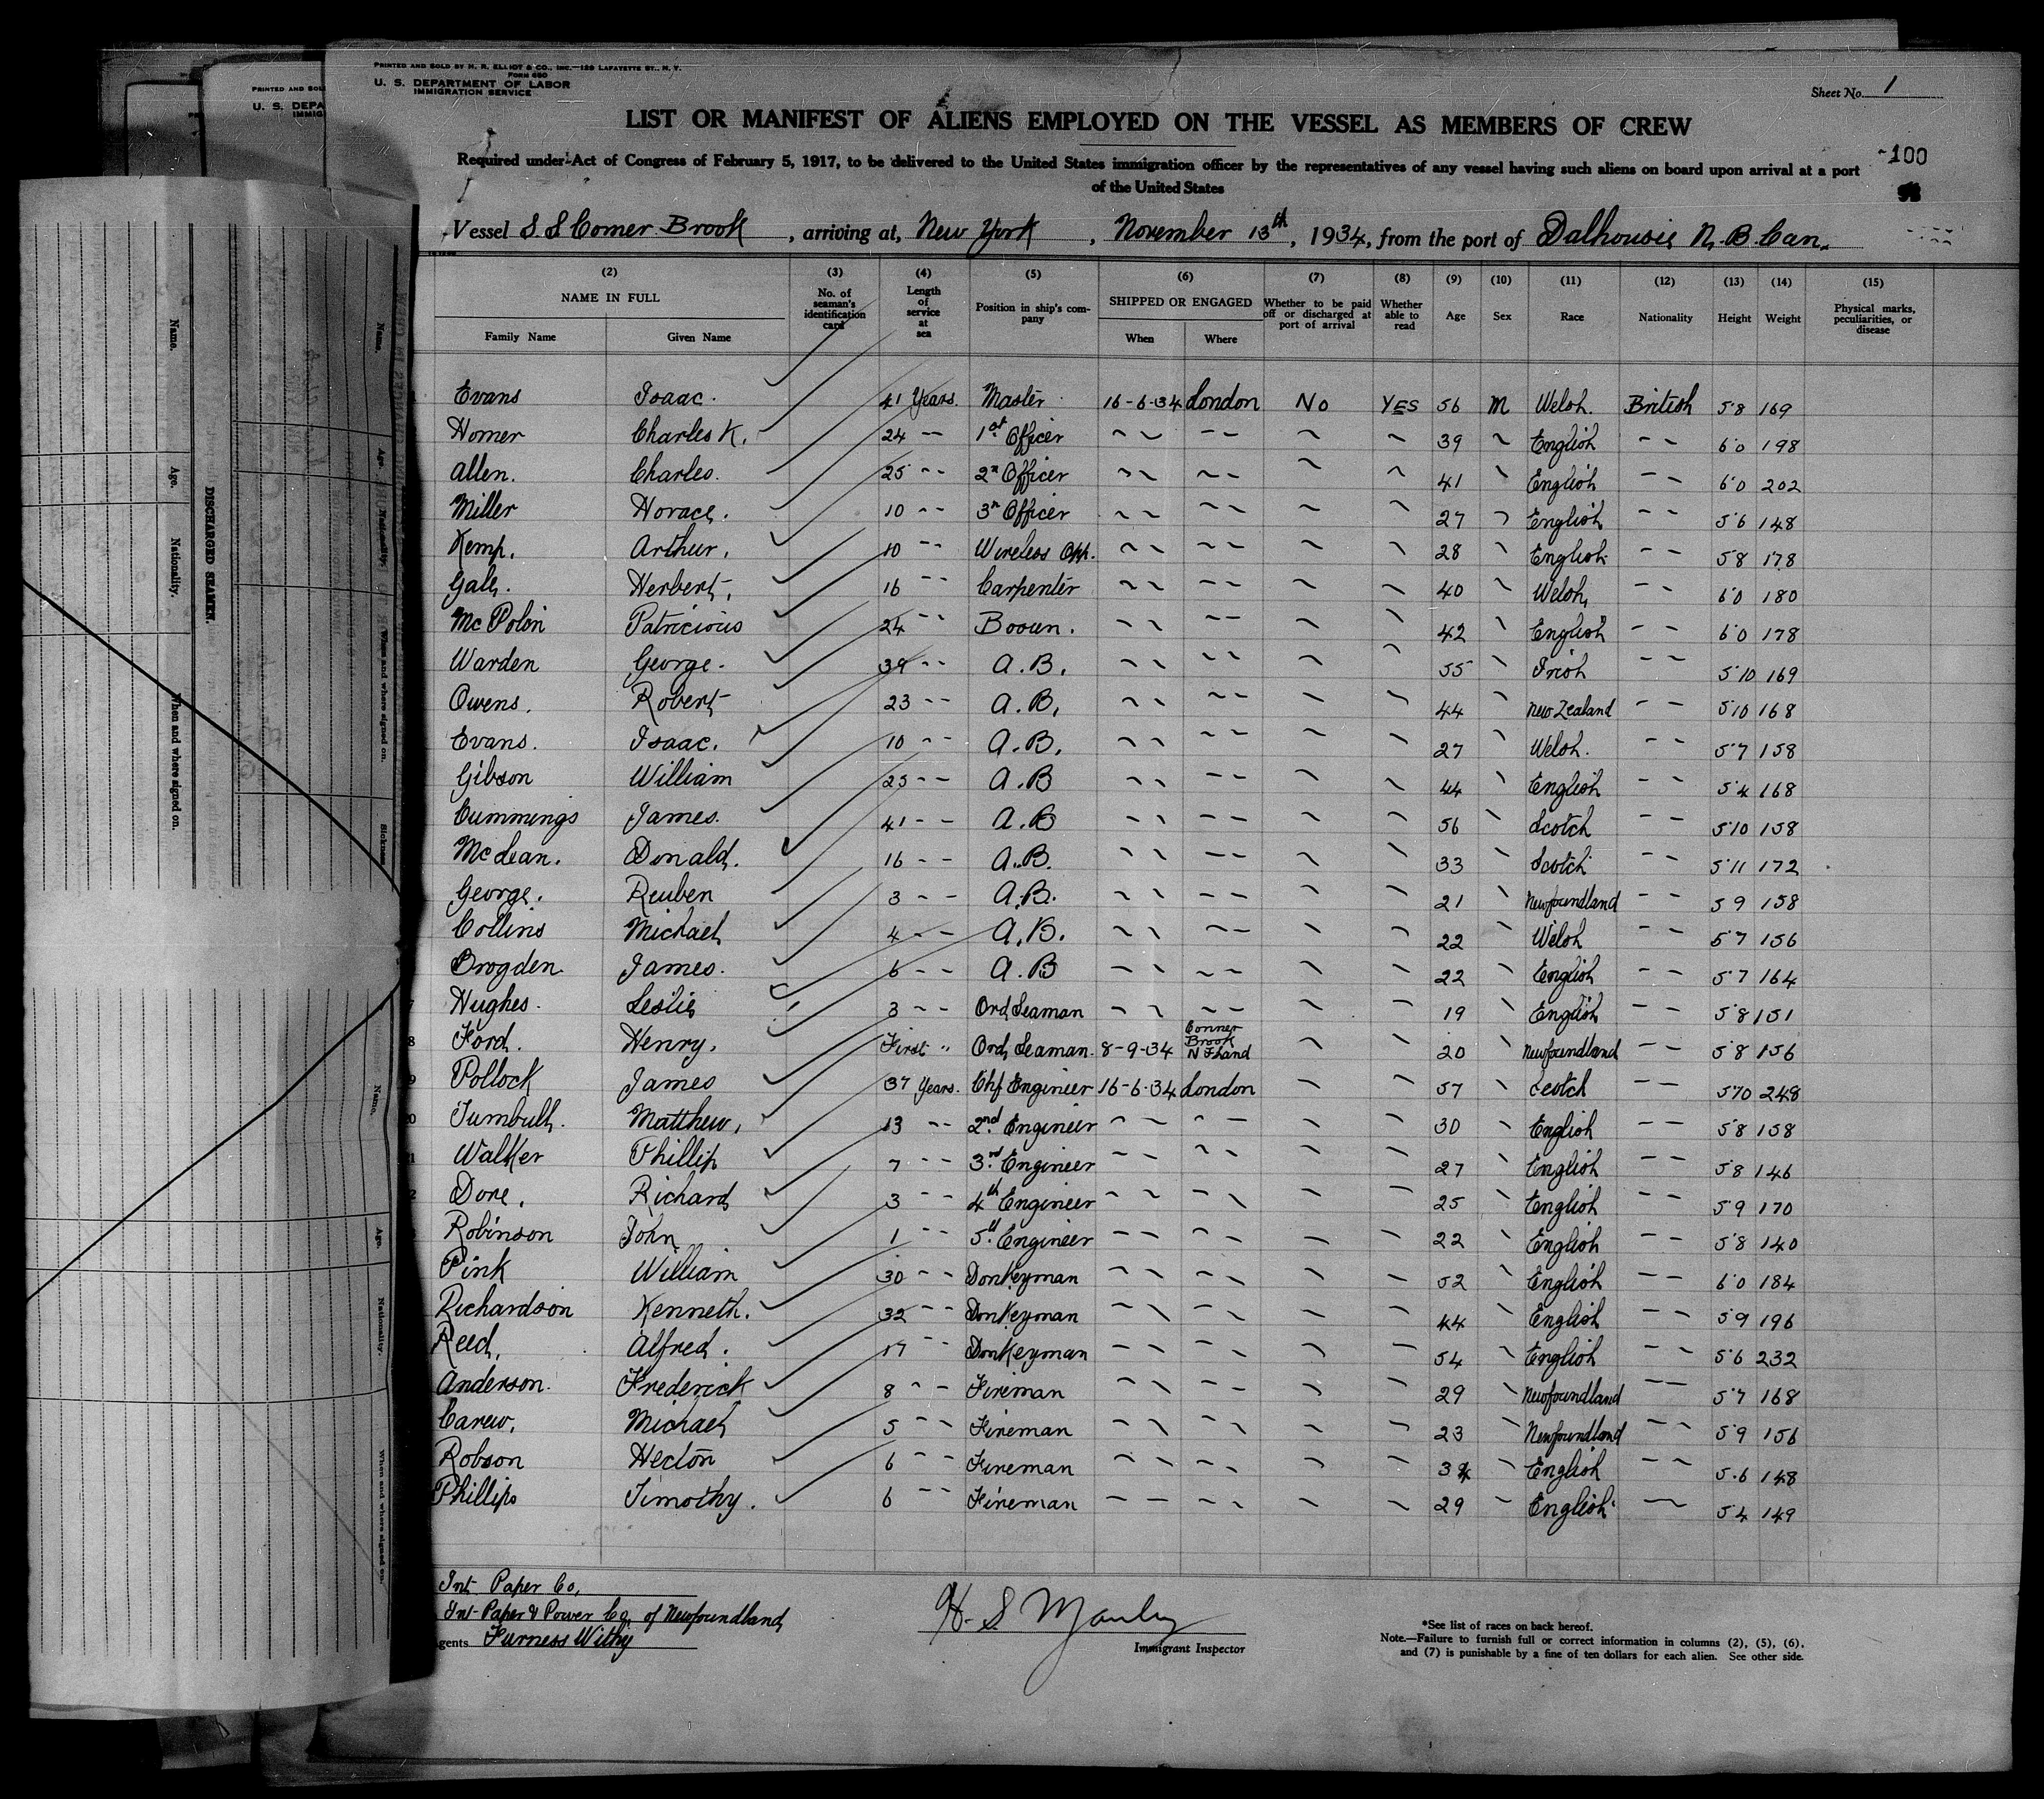 PRINTED AND SOLD BY H. R. ELLIOT & CO., INC.—129 LAFAYETTE ST., N. Y.
FORM 680
U. S. DEPARTMENT OF LABOR
IMMIGRATION SERVICE
Sheet No. 1
LIST OR MANIFEST OF ALIENS EMPLOYED ON THE VESSEL AS MEMBERS OF CREW
-100
Required under Act of Congress of February 5, 1917, to be delivered to the United States immigration officer by the representatives of any vessel having such aliens on board upon arrival at a port
of the United States
Vessel S. S Corner Brook, arriving at, New York, November 13th, 1934, from the port of Dalhousie N. B. Can.
(2) (3) (4) (5) (6) (7) (8) (9) (10) (11) (12) (13) (14) (15)
NAME IN FULL No. of seaman's identification card Length of service at sea Position in ship's company SHIPPED OR ENGAGED Whether to be paid off or discharged at port of arrival Whether able to read Age Sex Race Nationality Height Weight Physical marks, peculiarities, or disease
Family Name Given Name When Where
Evans Isaac. 41 Years. Master 16-6-34 London No YES 56 M Welsh. British 5'8 169
Homer Charles K. 24 -- 1st Officer 39 English 6'0 198
Allen. Charles. 25 -- 2n Officer 41 English 6'0 202
Miller Horace. 10 -- 3r Officer 27 English 5'6 148
Kemp. Arthur. 10 -- Wireless Opp. 28 English 5'8 178
Gale. Herbert. 16 -- Carpenter 40 Welsh, 6'0 180
Mc Polin Patricious 24 -- Bosun. 42 English 6'0 178
Warden George. 39 -- A.B. 55 Irish 5'10 169
Owens. Robert 23 -- A.B. 44 New Zealand 5'10 168
Evans. Isaac. 10 -- A.B. 27 Welsh. 5'7 158
Gibson William 25 -- A.B 44 English 5'4 168
Cummings James. 41 -- A.B 56 Scotch 5'10 158
McLean. Donald. 16 -- A.B. 33 Scotch 5'11 172
George. Reuben 3 -- A.B. 21 Newfoundland 5 9 158
Collins Michael 4 -- A.B. 22 Welsh 5'7 156
Brogden James. 6 -- A.B 22 English 5'7 164
Hughes. Leslie 3 -- Ord Seaman 19 English 5'8 151
Ford. Henry. First " Ord, Seaman. 8-9-34 Corner Brook N Fland 20 Newfoundland 5'8 156
Pollock James 37 Years. Chf Engineer 16-6-34 London 57 Scotch 5'10 248
Turnbull. Matthew. 13 -- 2nd Engineer 30 English 5'8 158
Walker Phillip 7 -- 3rd Engineer 27 English 5'8 146
Dore. Richard 3 -- 4th Engineer 25 English 5'9 170
Robinson John 1 -- 5th Engineer 22 English 5'8 140
Pink William 30 -- Donkeyman 52 English 6'0 184
Richardson Kenneth. 32 -- Donkeyman 44 English 5'9 196
Reed. Alfred. 17 -- Donkeyman 54 English 5'6 232
Anderson. Frederick 8 -- Fireman 29 Newfoundland 5'7 168
Carew. Michael 5 -- Fireman 23 Newfoundland 5'9 156
Robson Hector 6 - Fireman English 5.6 148
Phillips Timothy. 6 -- Fireman 29 English 5 4 149
Int Paper Co,
Int Paper & Power Co, of Newfoundland
gents Furness Withy
H. S. Manley
Immigrant Inspector
*See list of races on back hereof.
Note.—Failure to furnish full or correct information in columns (2), (5), (6),
and (7) is punishable by a fine of ten dollars for each alien. See other side.
PRINTED AND SOL
U. S. DEPA
IMMIG
DISCHARGED SEAMEN.
Name.
Age.
Nationality.
When and where signed on.
Name.
Age.
When and where signed on.
Sickness
Name.
Age.
Nationality.
When and where signed on.